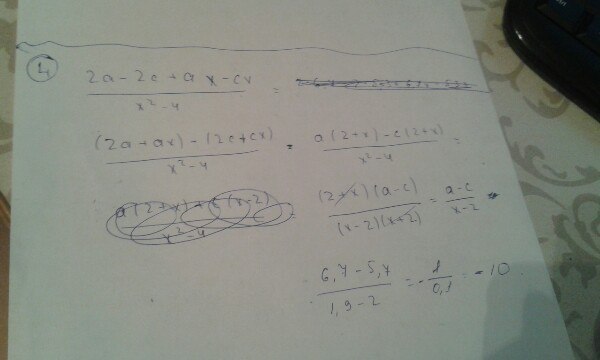 4
2a-2c+ax-cx / x²-4 =
(2a+ax)-(2c+cx) / x²-4 = a(2+x)-c(2+x) / x²-4 =
(2+x)(a-c) / (x-2)(x+2) = a-c / x-2 =
6,7-5,7 / 1,9-2 = -1 / 0,1 = -10